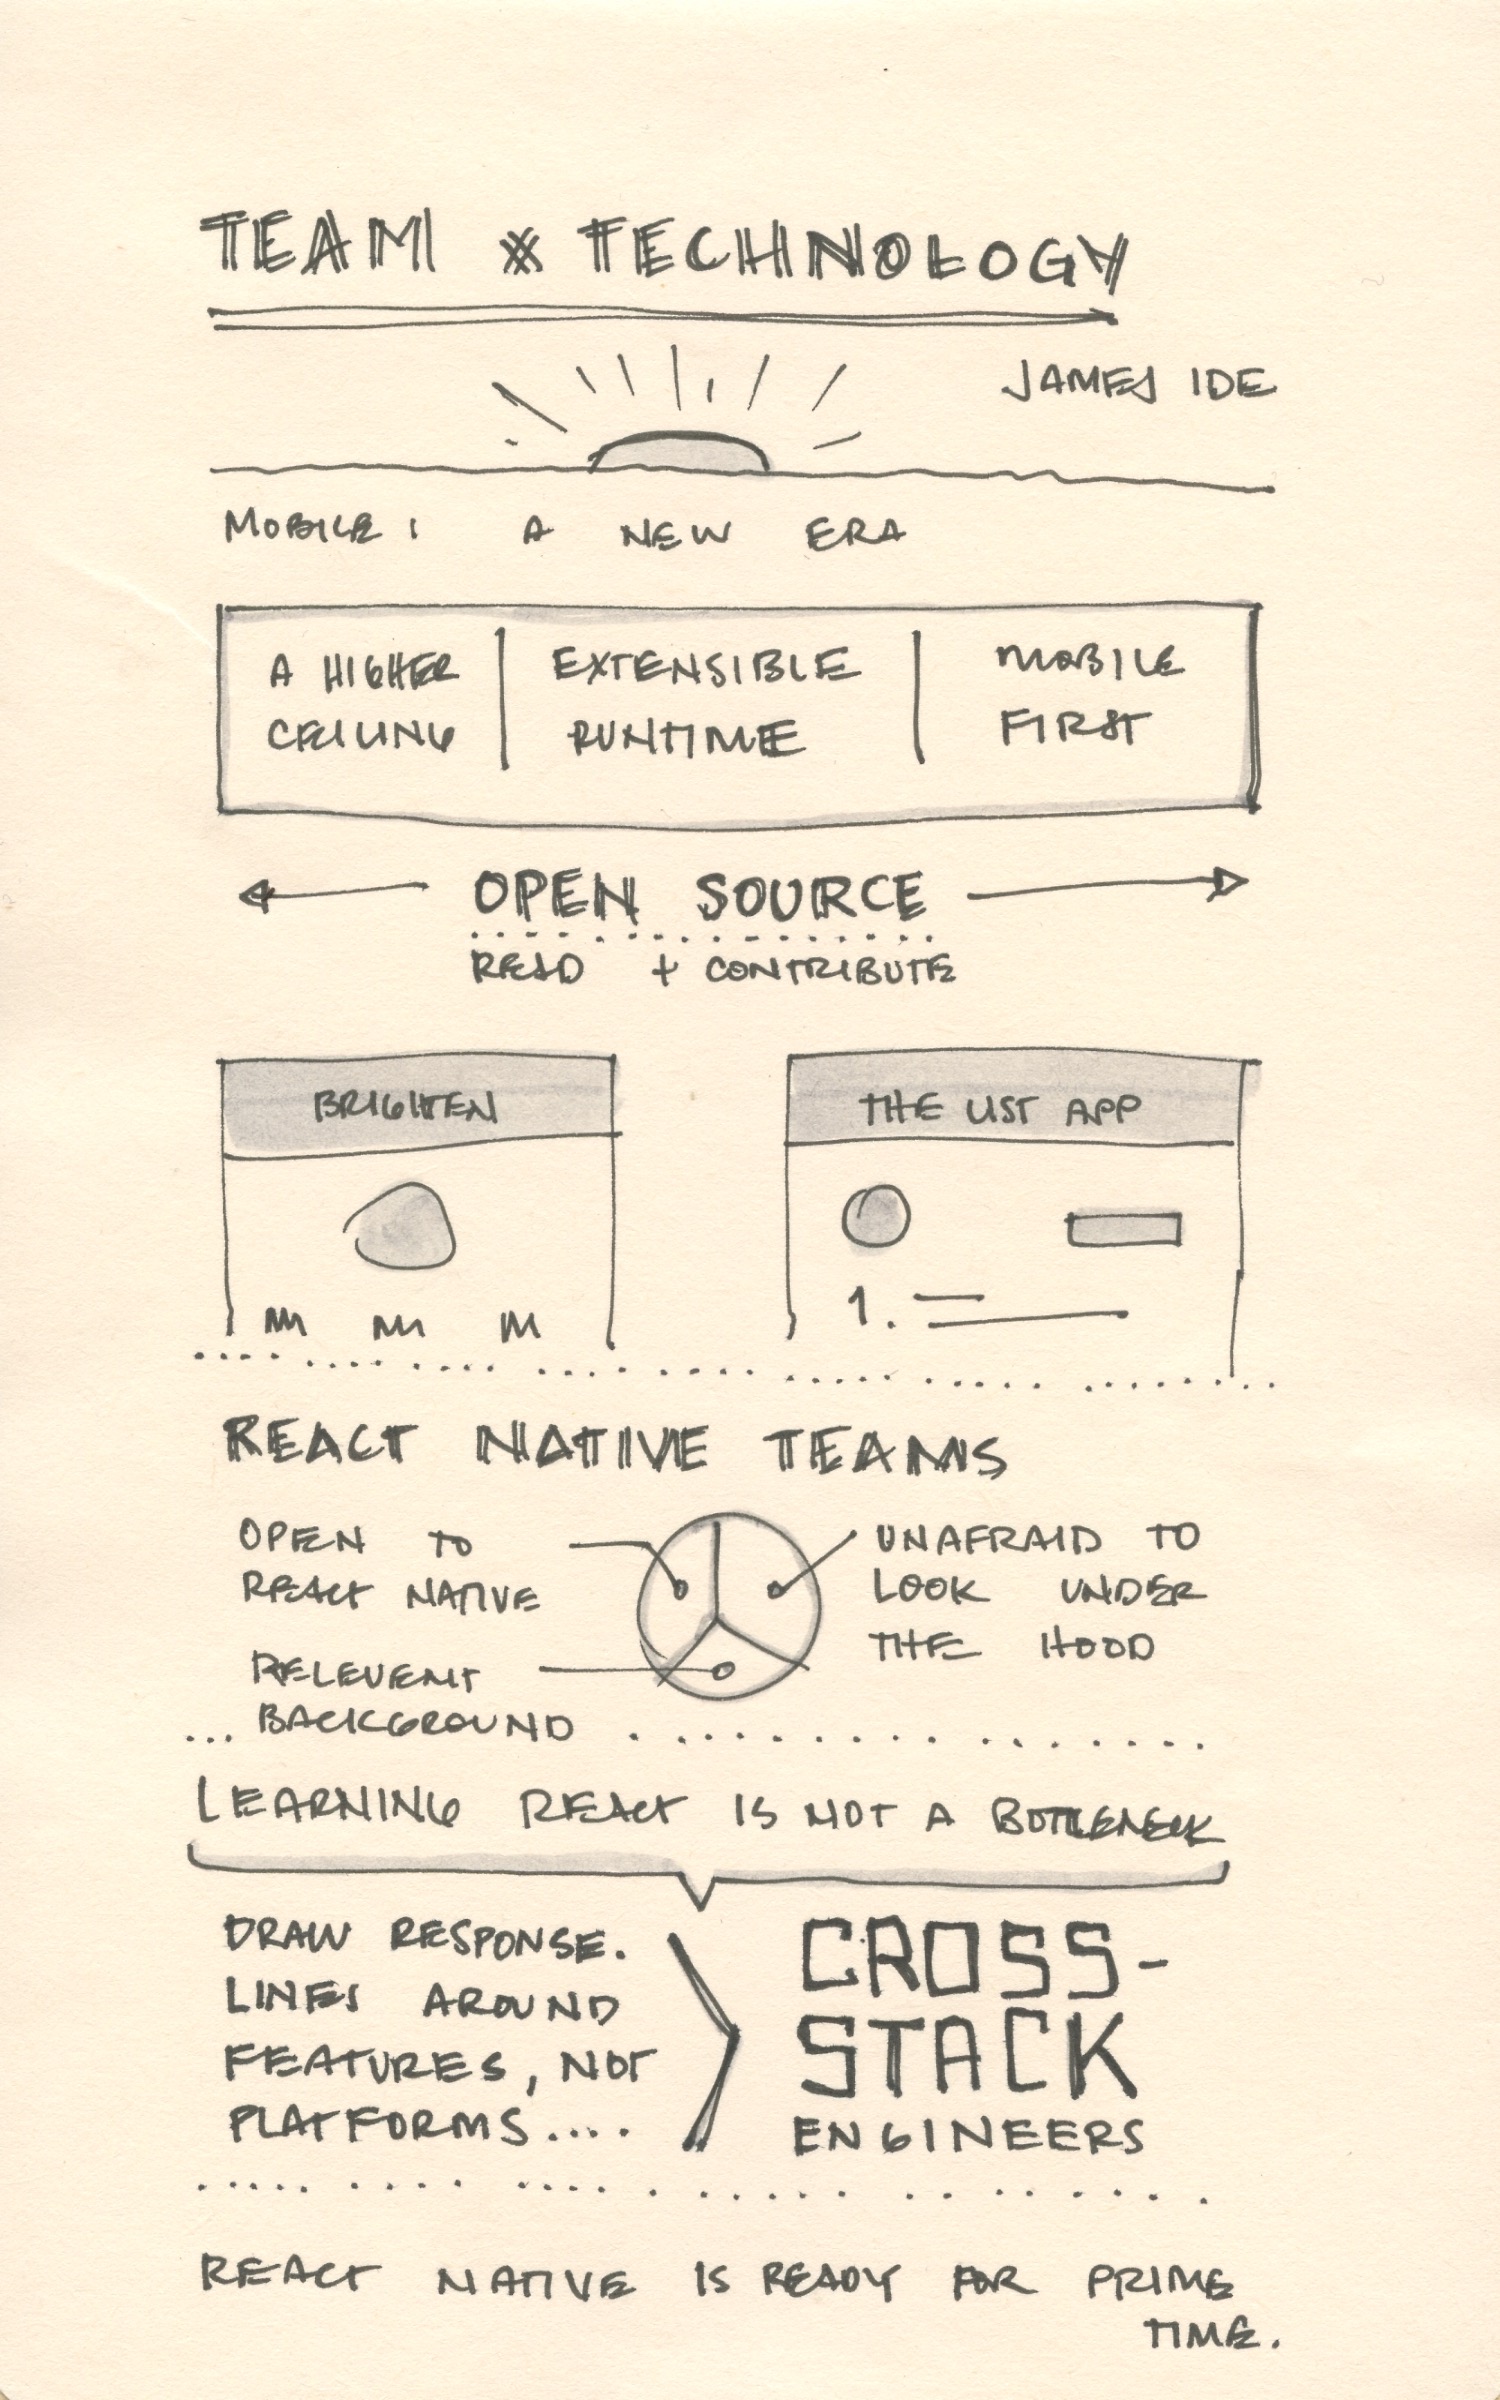 TEAM X TECHNOLOGY
JAMES IDE
MOBILE: A NEW ERA
A HIGHER
CEILING
EXTENSIBLE
RUNTIME
MOBILE
FIRST
OPEN SOURCE
READ + CONTRIBUTE
BRIGHTEN
THE LIST APP
1.
REACT NATIVE TEAMS
OPEN TO
REACT NATIVE
UNAFRAID TO
LOOK UNDER
THE HOOD
RELEVENT
BACKGROUND
LEARNING REACT IS NOT A BOTTLENECK
DRAW RESPONSE.
LINES AROUND
FEATURES, NOT
PLATFORMS....
CROSS-
STACK
ENGINEERS
REACT NATIVE IS READY FOR PRIME
TIME.